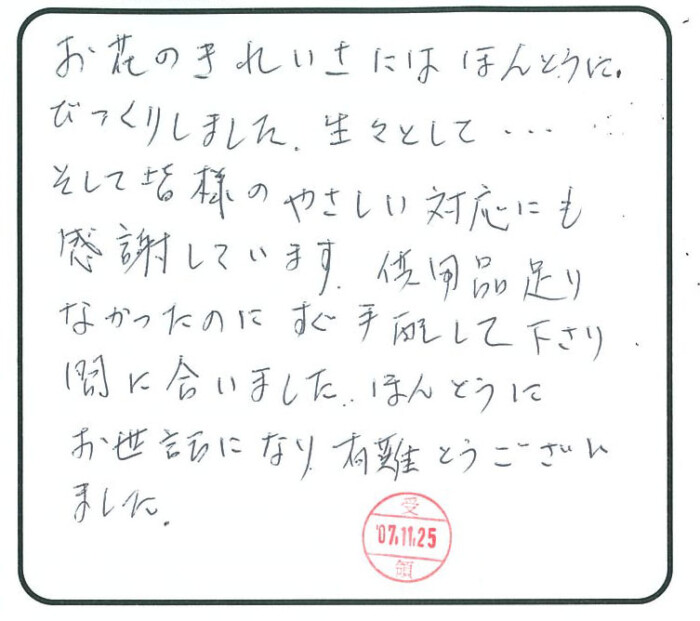 お花のきれいさにはほんとうに.
びっくりしました. 生々として・・・
そして皆様のやさしい対応にも
感謝しています. 供用品足り
なかったのにすぐ手配して下さり.
間に合いました. ほんとうに
お世話になり 有難とうございい
ました.
受
'07.11.25
領